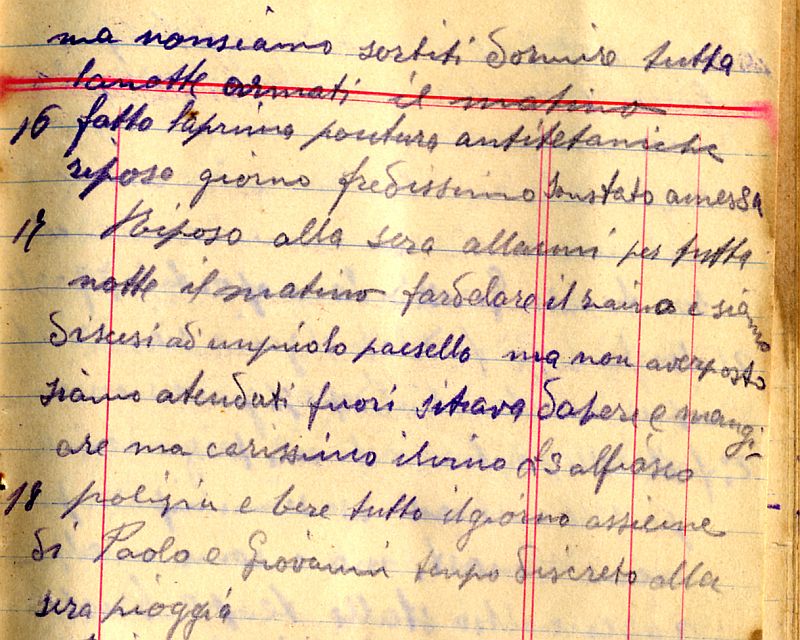 ma nonsiamo sortiti dormire tutta
lanotte armati il matino
16 fatto laprima pontura antitetaniche
riposo giorno fredissimo sonstato amessa
17 Riposo alla sera allarmi per tutta
notte il matino fardelare il zaino e siamo
discesi ad unpiolo paesello ma non averposto
siamo atendati fuori sitrava dabere e mangi-
are ma carissimo ilvino £3 alfiasco
18 polizia e bere tutto ilgiorno assieme
di Paolo e Giovanni tenpo discreto alla
sera pioggia